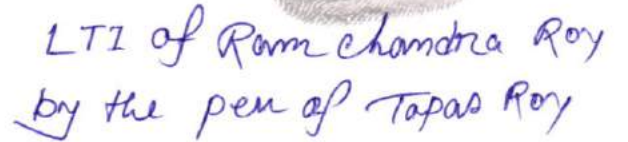 LTI of Ram Chandra Roy
by the pen of Tapas Roy